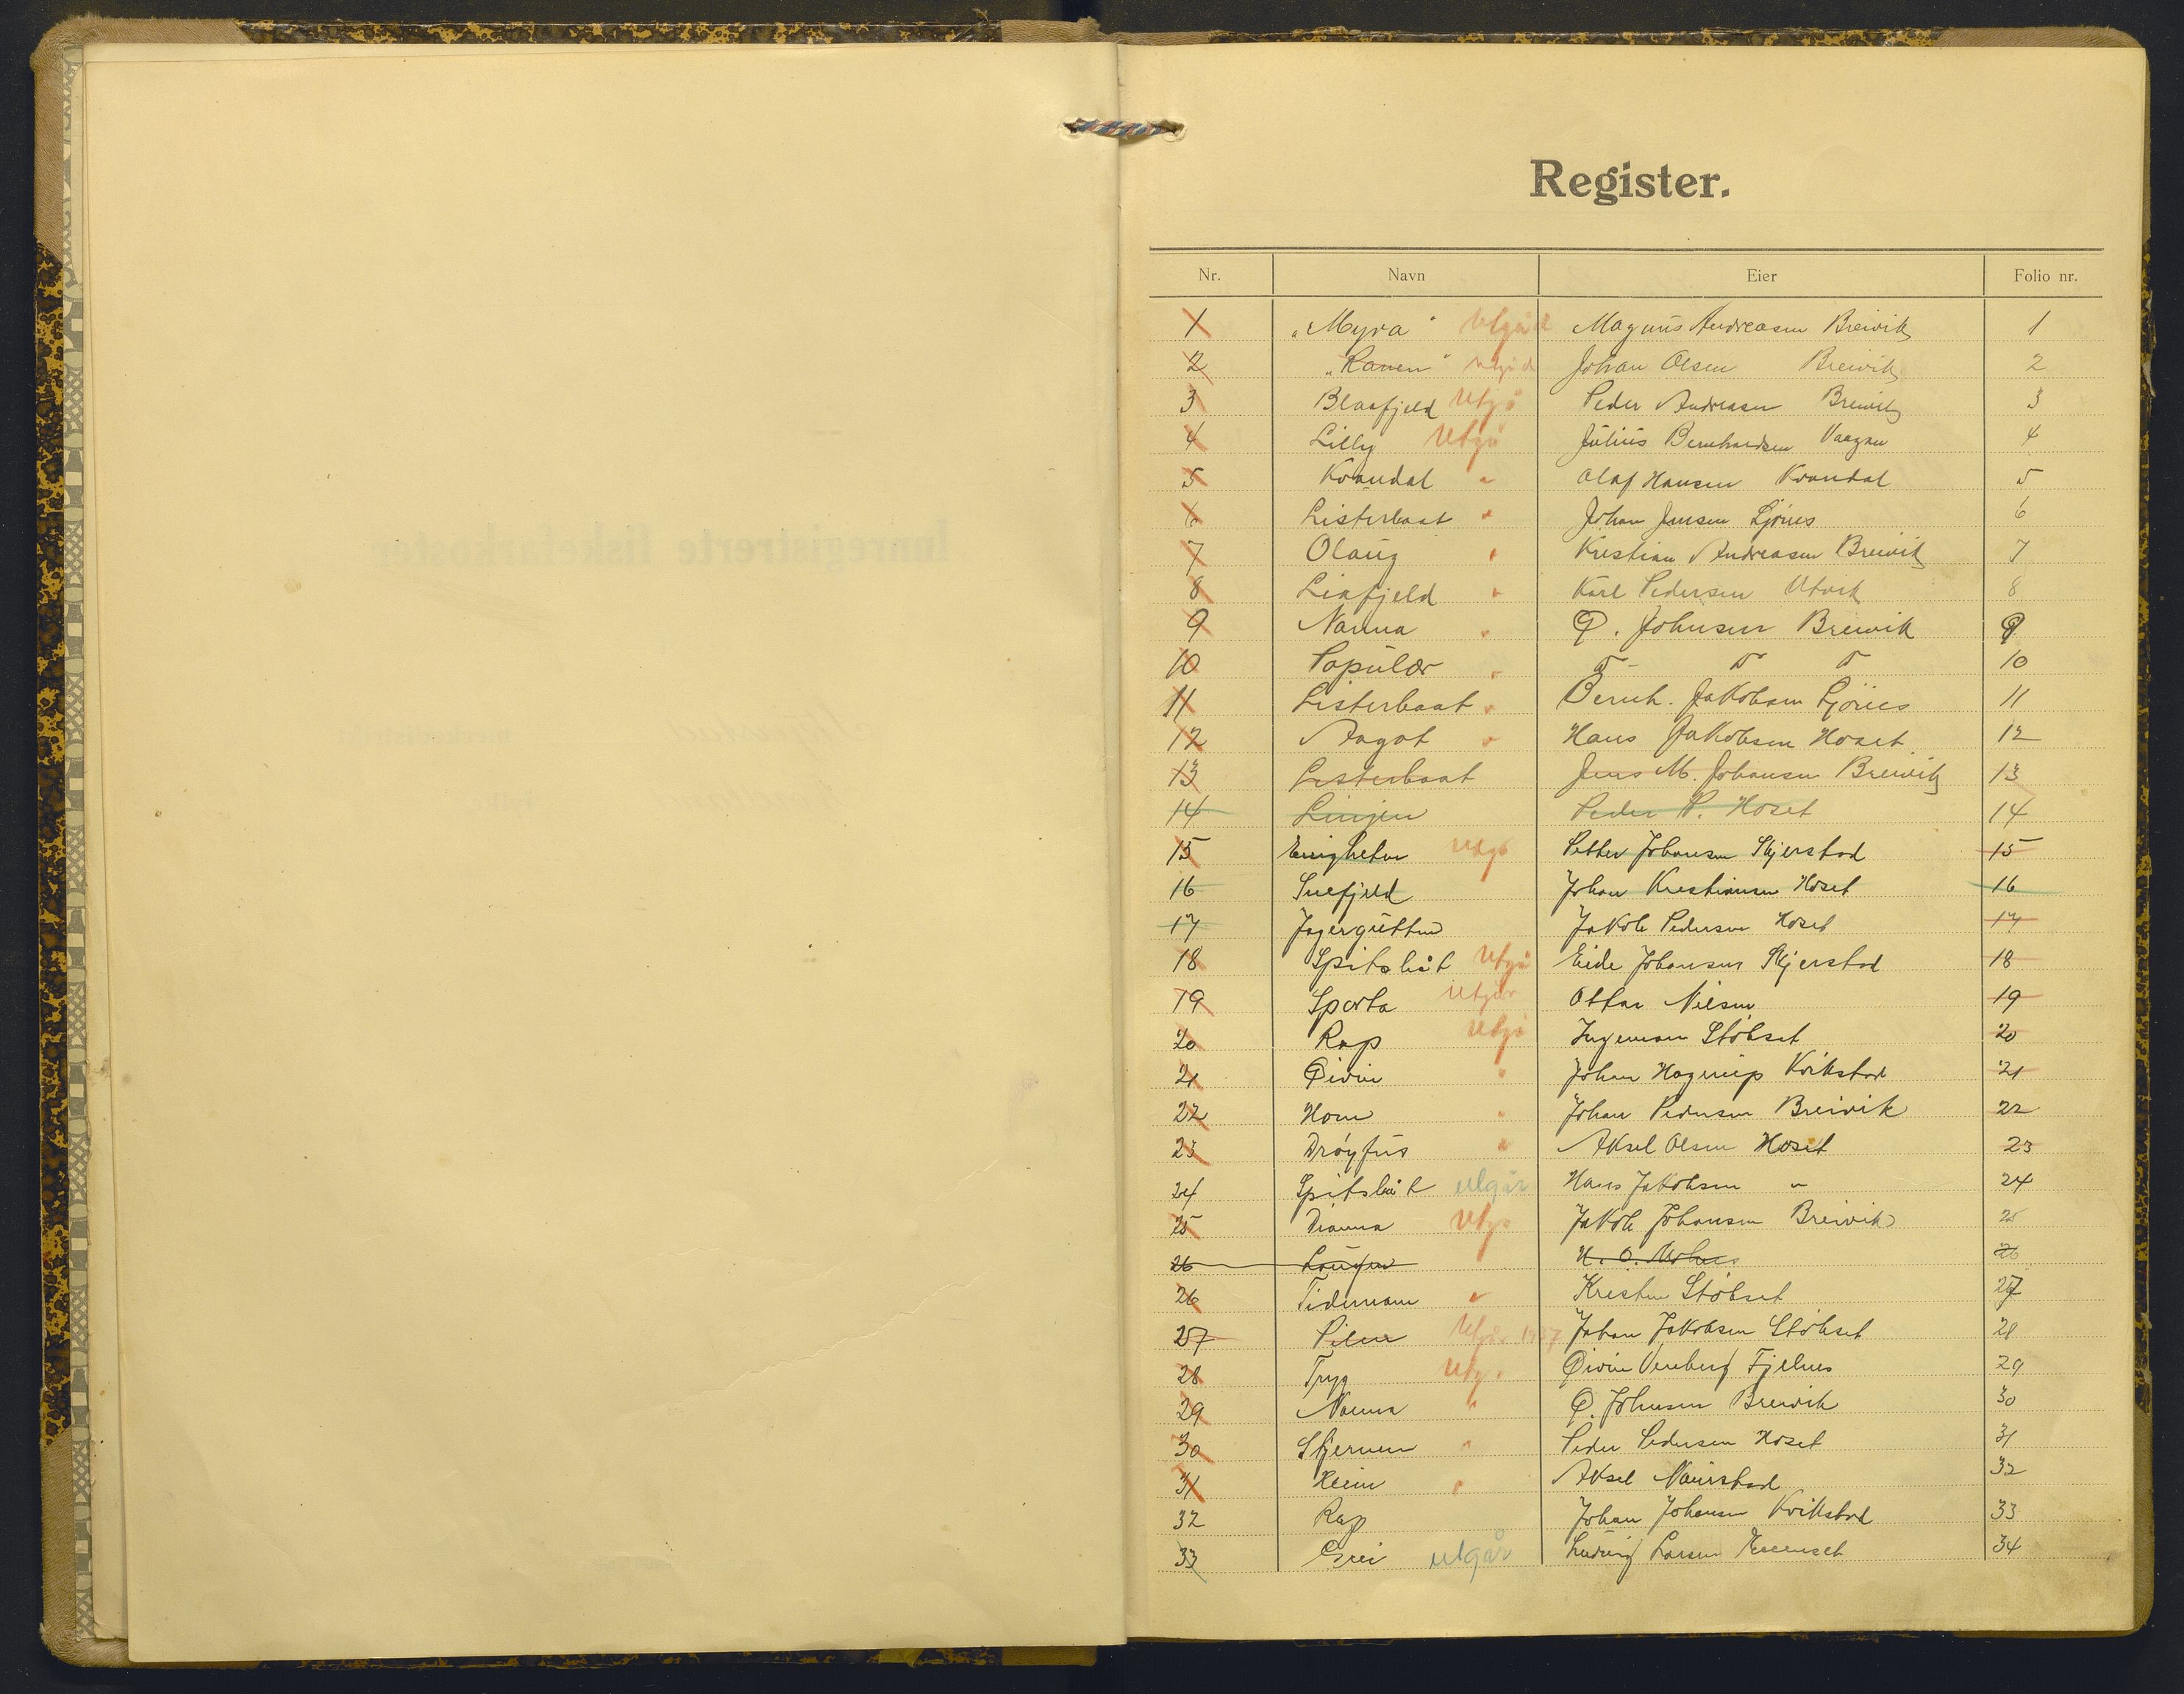 Register.
Nr. Navn Eier Folio nr.
1 „Myra" Utgåd Magnus Andreasen Breivik 1
2 „Ranen" Utgåd Johan Olsen Breivik 2
3 Blaafjeld Utgå Peder Andreasen Breivik 3
4 Lilly Utgå Julius Bernhardsen Vaagan 4
5 Kvandal " Olaf Hansen Kvandal 5
6 Listerbaat " Johan Jensen Ljønes 6
7 Olaug " Kristian Andreasen Breivik 7
8 Liafjeld " Karl Pedersen Utvik 8
9 Nanna " Ø. Johnsen Breivik 9
10 Populær " 10
11 Listerbaat " Bernh. Jakobsen Ljønes 11
12 Aagot " Hans Jakobsen Hoset 12
13 Listerbaat Jens M. Johansen Breivik 13
14 Linjen Peder P. Hoset 14
15 Enigheten Utgå Petter Johansen Skjerstad 15
16 Snefjeld Johan Kristiansen Hoset 16
17 Jagergutten Jakob Pedersen Hoset 17
18 Spitsbåt Utgå Eide Johansen Skjerstad 18
19 Sporta Utgår Ottar Nilsen 19
20 Rap Utgå Ingeman Støbset 20
21 Øivin " Johan Hagerup Kvikstad 21
22 Horn " Johan Pedersen Breivik 22
23 Drøyfus " Aksel Olsen Hoset 23
24 Spitsbåt utgår Hans Jakobsen " 24
25 Dianna Utgå Jakob Johansen Breivik 25
26 H. O. 26
26 Tidemann " Kristen Støbset 27
27 Pilen Utgår 1937 Johan Jakobsen Støbset 28
28 Tryg Utgå Øivin Venberg Fjelnes 29
29 Nanna " Ø. Johnsen Breivik 30
30 Stjernen " Peder Pedersen Hoset 31
31 Heim " Aksel Naurstad 32
32 Rap Johan Johansen Kvikstad 33
33 Grei utgår Ludvig Larsen 34